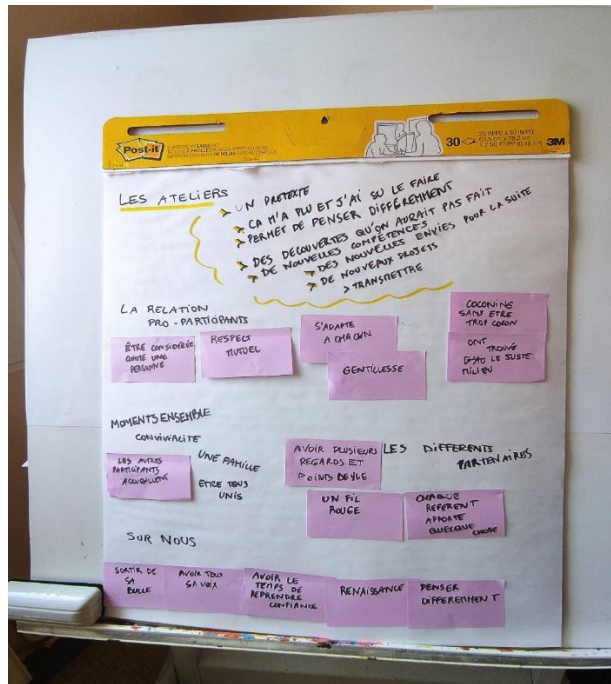 Post-it
30
25 IN/PO x 30 IN/PO
63,5 cm x 76,2 cm
3M
LES ATELIERS
> UN PRETEXTE
> CA M'A PLU ET S'AI SU LE FAIRE
> PERMET DE PENSER DIFFEREMMENT
> DES DECOUVERTES QU'ON AURAIT PAS FAIT
> DE NOUVELLES COMPETENCES
> DES NOUVELLES ENVIES POUR LA SUITE
> DE NOUVEAUX PROJETS
> TRANSMETTRE
LA RELATION
PRO-PARTICIPANTS
ÊTRE CONSIDÉRÉE
COMME UNE
PERSONNE
RESPECT
MUTUEL
S'ADAPTE
A CHACUN
GENTILLESSE
COCONING
SANS ETRE
TROP COCON
ONT
TROUVÉ
LE JUSTE
MILIEU
MOMENTS ENSEMBLE
CONVIVIALITE
LES AUTRES
PARTICIPANTS
ACCUEILLENT
UNE FAMILLE
ETRE TOUS
UNIS
AVOIR PLUSIEURS
REGARDS ET
POINTS DE VUE
LES DIFFERENTS
PARTENAIRES
UN FIL
ROUGE
CHAQUE
REFERENT
APPORTE
QUELQUE CHOSE
SUR NOUS
SORTIR DE
SA
BULLE
AVOIR TOUS
SA VOIX
AVOIR LE
TEMPS DE
REPRENDRE
CONFIANCE
RENAISSANCE
PENSER
DIFFEREMMENT